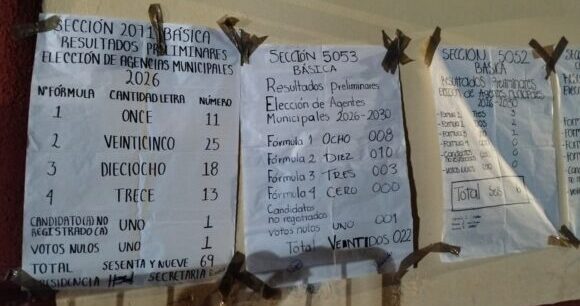 SECCIÓN 2071 BÁSICA
RESULTADOS PRELIMINARES
ELECCIÓN DE AGENCIAS MUNICIPALES
2026
N° FÓRMULA CANTIDAD LETRA NÚMERO
1 ONCE 11
2 VEINTICINCO 25
3 DIECIOCHO 18
4 TRECE 13
CANDIDATO(A) NO
REGISTRADO(A) UNO 1
VOTOS NULOS UNO 1
TOTAL SESENTA Y NUEVE 69
PRESIDENCIA SECRETARIA
SECCIÓN 5053
BÁSICA
Resultados Preliminares
Elección de Agentes
Municipales 2026-2030
Fórmula 1 OCHO 008
Fórmula 2 DIEZ 010
Fórmula 3 TRES 003
Fórmula 4 CERO 000
Candidatos
no registrados
votos nulos UNO 001
Total VEINTIDOS 022
SECCIÓN 5052
BÁSICA
Resultados Preliminares
Elección de Agentes municipales
2026-2030
3
2
1
0
0
0
Total Seis 6